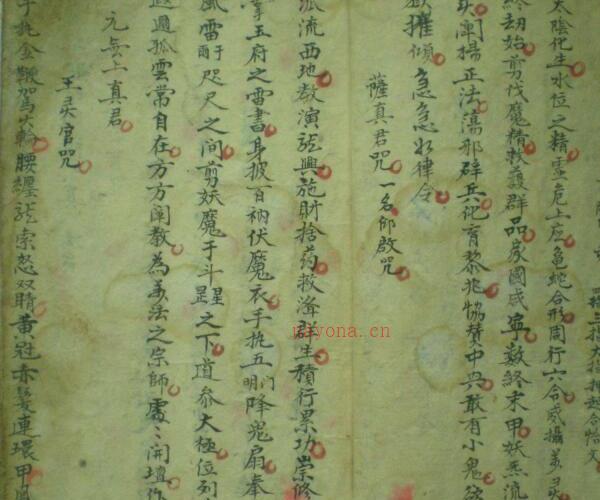 太陰化生水位之精靈危上应龜蛇合形周行六合威攝万灵
終劫始剪伐魔精救護群品家國咸寧数終末甲妖炁流
闡揚正法蕩邪群兵化育黎兆協賛中兴敢有小鬼
摧傾急急如律令
薩真君咒 一名仰啟咒
派流西地教演張興施財捨药救済群生積行累功崇修
掌玉府之雷書身披百衲伏魔衣手执五明降鬼扇奉
風雷于咫尺之間剪妖魔于斗罡之下道参太極位列
遐遇孤雲常自在方方闡教為美法之宗師處々開壇作
元安上真君
王灵官咒
手执金鞭駕火輪腰纏張索怒双睛黃冠赤髮連環甲風
nayona.cn